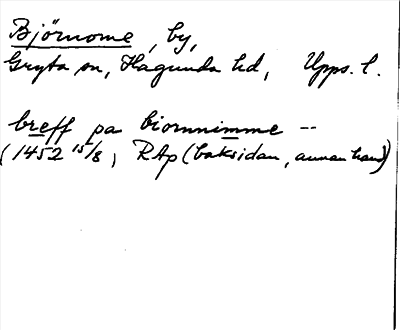 Björnome, by,
Gryta sn, Hagunda hd, Upps. l.
breff pa biornnimme --
(1452 15/8, RAp (baksidan, annan hand)